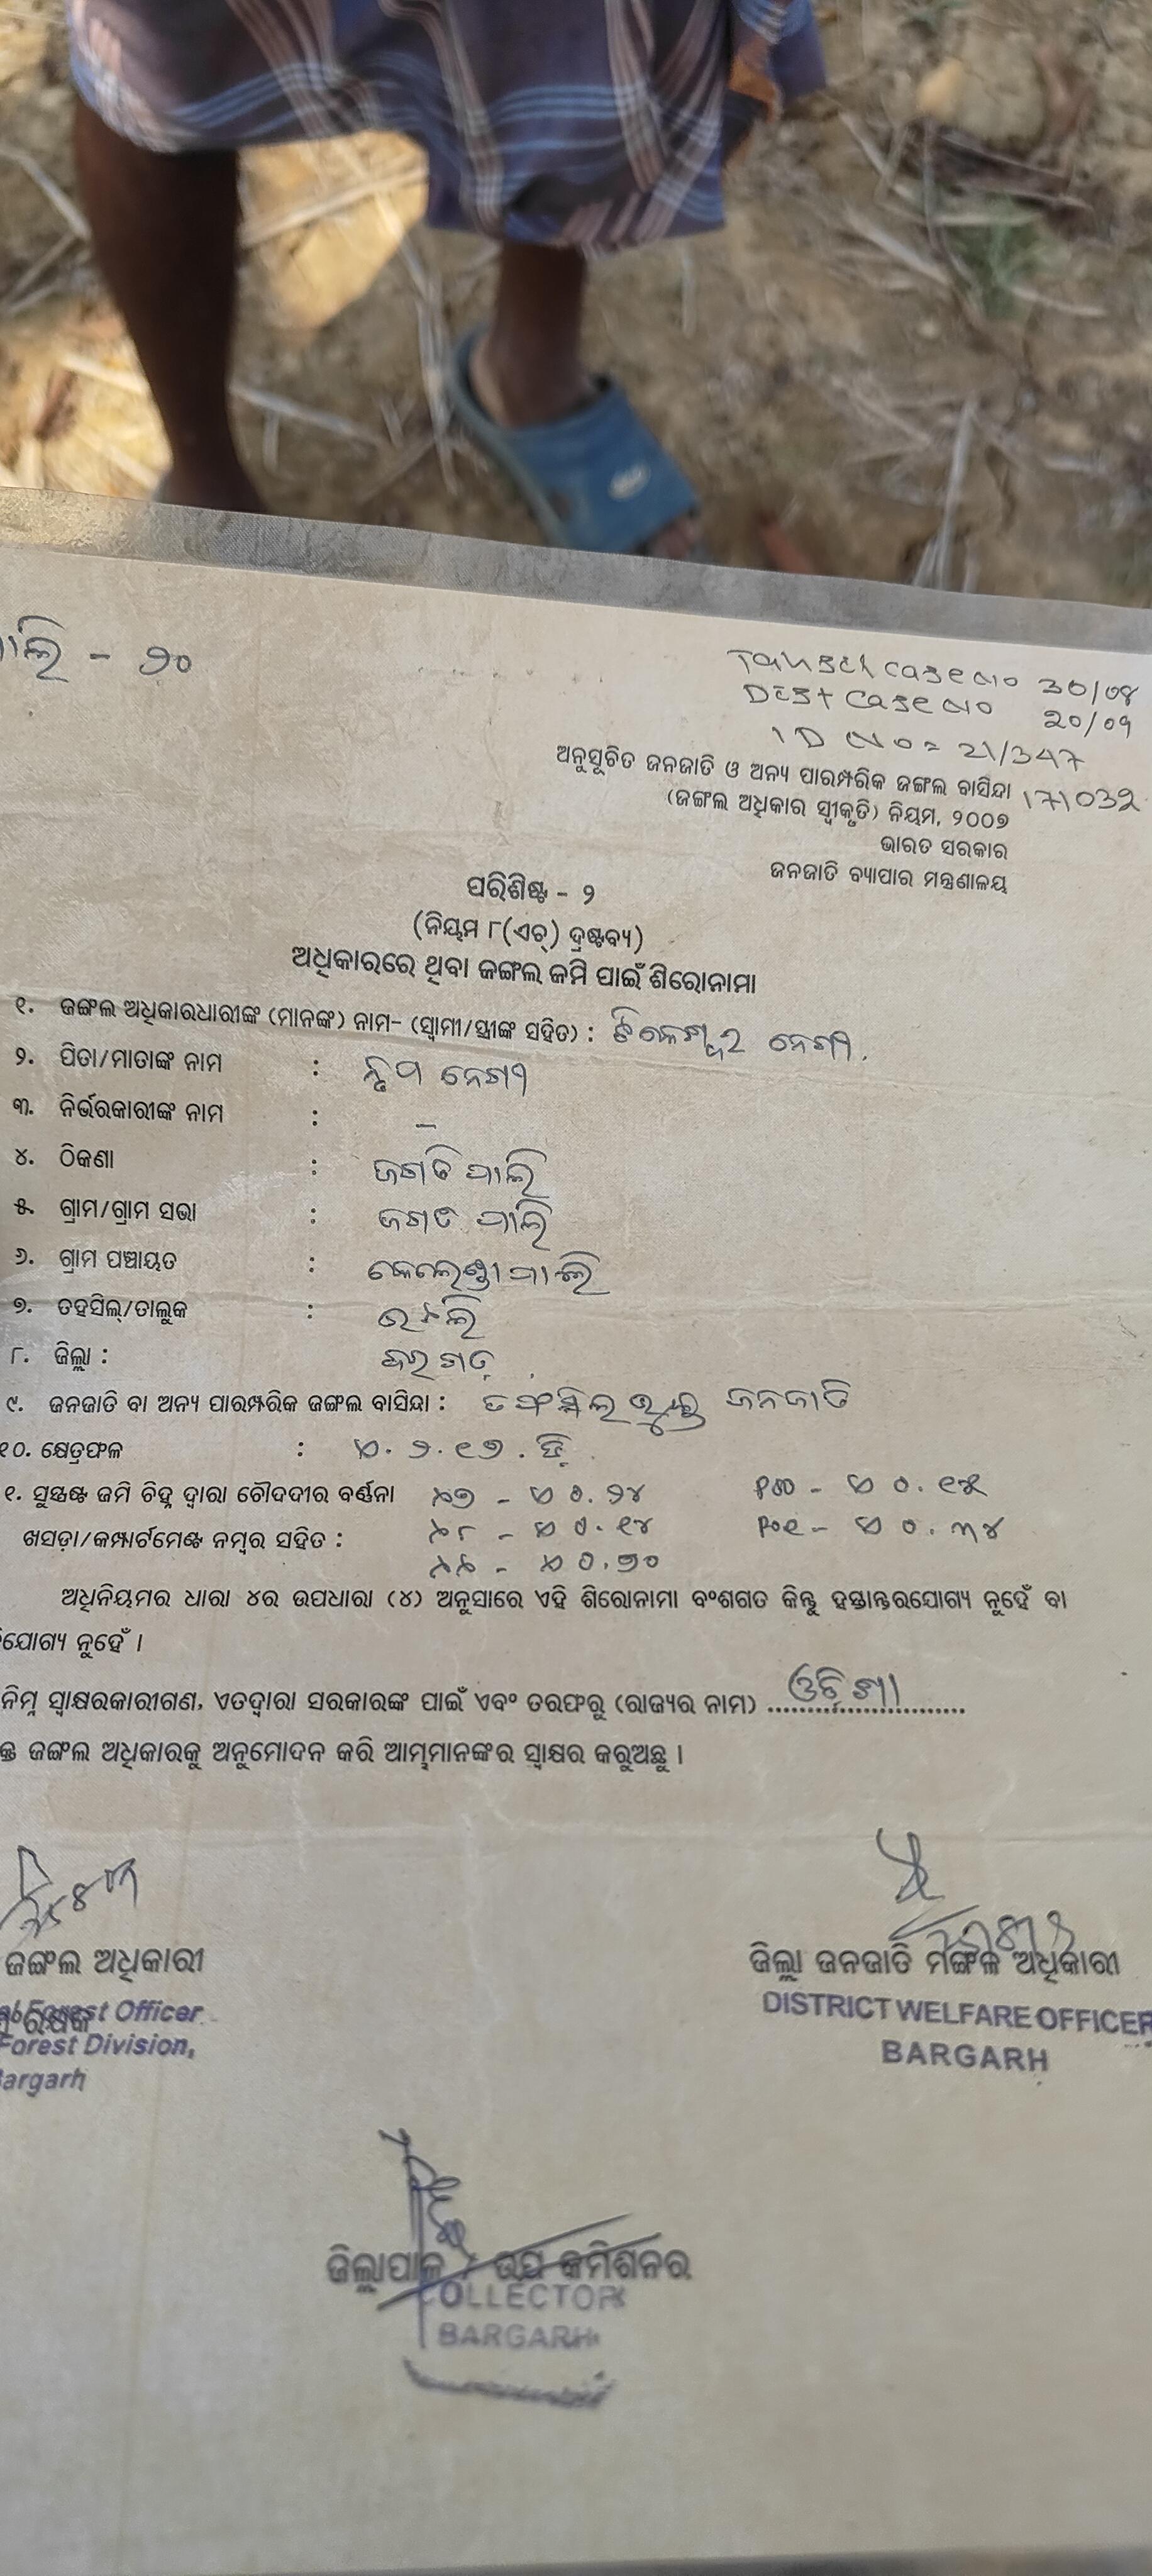 ପାଲି - ୨୦
Tahsil case no 30/08
Dist case no 20/09
ID No = 21/347
ଅନୁସୂଚିତ ଜନଜାତି ଓ ଅନ୍ୟ ପାରମ୍ପରିକ ଜଙ୍ଗଲ ବାସିନ୍ଦା 171032
(ଜଙ୍ଗଲ ଅଧିକାର ସ୍ୱୀକୃତି) ନିୟମ, ୨୦୦୭
ଭାରତ ସରକାର
ଜନଜାତି ବ୍ୟାପାର ମନ୍ତ୍ରଣାଳୟ
ପରିଶିଷ୍ଟ - ୨
(ନିୟମ ୮(ଏଚ୍) ଦ୍ରଷ୍ଟବ୍ୟ)
ଅଧିକାରରେ ଥିବା ଜଙ୍ଗଲ ଜମି ପାଇଁ ଶିରୋନାମା
୧. ଜଙ୍ଗଲ ଅଧିକାରଧାରୀଙ୍କ (ମାନଙ୍କ) ନାମ- (ସ୍ୱାମୀ/ସ୍ତ୍ରୀଙ୍କ ସହିତ) : ଟିକେଶ୍ୱର ନେଗୀ.
୨. ପିତା/ମାତାଙ୍କ ନାମ : ନେଗୀ
୩. ନିର୍ଭରକାରୀଙ୍କ ନାମ : -
୪. ଠିକଣା : ଜଗତି ପାଲି
୫. ଗ୍ରାମ/ଗ୍ରାମ ସଭା : ଜଗତ ପାଲି
୬. ଗ୍ରାମ ପଞ୍ଚାୟତ : କେଲେଣ୍ଡା ପାଲି
୭. ତହସିଲ୍/ତାଲୁକ :
୮. ଜିଲ୍ଲା : ବରଗଡ଼
୯. ଜନଜାତି ବା ଅନ୍ୟ ପାରମ୍ପରିକ ଜଙ୍ଗଲ ବାସିନ୍ଦା : ତଫସିଲ ଭୁକ୍ତ ଜନଜାତି
୧୦. କ୍ଷେତ୍ରଫଳ : ଏ. ୨.୧୭. ଡ଼ି.
୧. ସୁସ୍ପଷ୍ଟ ଜମି ଚିହ୍ନ ଦ୍ୱାରା ଚୌଦଦୀର ବର୍ଣ୍ଣନା - ଏ ୦.୨୪ - ଏ ୦.୧୫
ଖସଡ଼ା/କମ୍ପାର୍ଟମେଣ୍ଟ ନମ୍ବର ସହିତ : - ଏ ୦.୧୪ - ଏ ୦.୩୪
- ଏ ୦.୭୦
ଅଧିନିୟମର ଧାରା ୪ର ଉପଧାରା (୪) ଅନୁସାରେ ଏହି ଶିରୋନାମା ବଂଶଗତ କିନ୍ତୁ ହସ୍ତାନ୍ତରଯୋଗ୍ୟ ନୁହେଁ ବା
ଯୋଗ୍ୟ ନୁହେଁ ।
ନିମ୍ନ ସ୍ୱାକ୍ଷରକାରୀଗଣ, ଏତଦ୍ୱାରା ସରକାରଙ୍କ ପାଇଁ ଏବଂ ତରଫରୁ (ରାଜ୍ୟର ନାମ) ଓଡ଼ିଶା
କ୍ତ ଜଙ୍ଗଲ ଅଧିକାରକୁ ଅନୁମୋଦନ କରି ଆମ୍ଭମାନଙ୍କର ସ୍ୱାକ୍ଷର କରୁଅଛୁ ।
ଜଙ୍ଗଲ ଅଧିକାରୀ
ରକ୍ଷକ
al Forest Officer
Forest Division,
Bargarh
ଜିଲ୍ଲା ଜନଜାତି ମଙ୍ଗଳ ଅଧିକାରୀ
DISTRICT WELFARE OFFICER
BARGARH
ଜିଲ୍ଲାପାଳ / ଉପ କମିଶନର
COLLECTOR
BARGARH